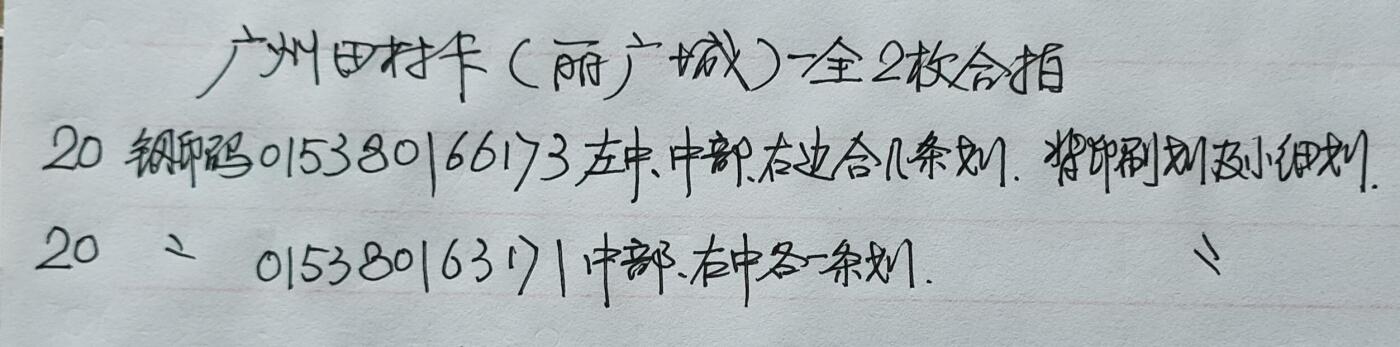 广州田村卡(丽广城)一全2枚合指
20 钢印码015380166173左中、中部、右边合几条划. 带印刷划及小细划.
20 〃 015380163171中部、右中各一条划. 〃